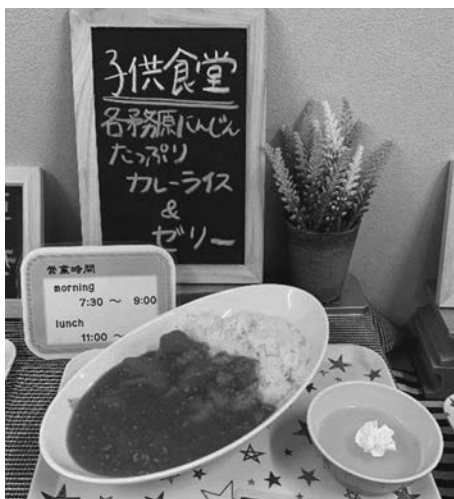 子供食堂
各務原にんじん
たっぷり
カレーライス
&
ゼリー
営業時間
morning
7:30 〜 9:00
lunch
11:00 〜